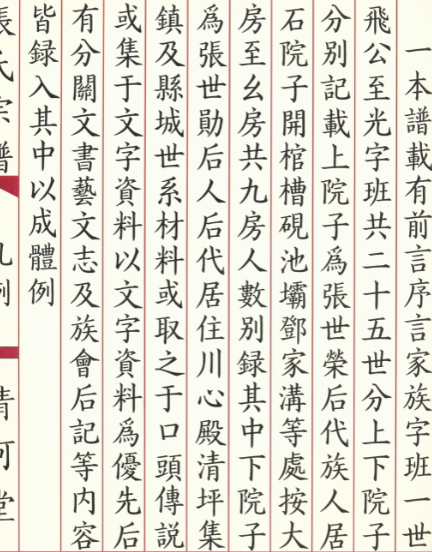 一本譜載有前言序言家族字班一世
飛公至光字班共二十五世分上下院子
分别記載上院子爲張世榮后代族人居
石院子開棺槽硯池壩鄧家溝等處按大
房至幺房共九房人數别録其中下院子
爲張世勛后人后代居住川心殿清坪集
鎮及縣城世系材料或取之于口頭傳説
或集于文字資料以文字資料爲優先后
有分關文書藝文志及族會后記等内容
皆録入其中以成體例
張氏宗譜
凡例
清河堂